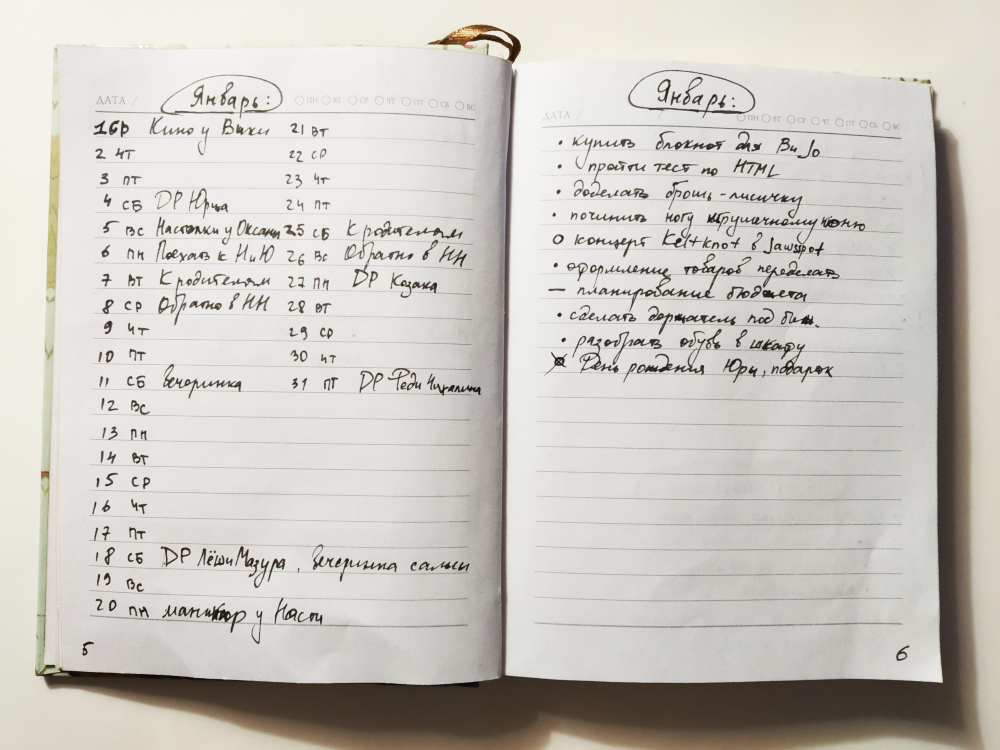 Январь:
ДАТА / ПН ВТ СР ЧТ ПТ СБ ВС
1 СР Кино у Вики
2 ЧТ
3 ПТ
4 СБ ДР Юрца
5 ВС Настолки у Оксаны
6 ПН Поехать к Н и Ю
7 ВТ К родителям
8 СР Обратно в НН
9 ЧТ
10 ПТ
11 СБ Вечеринка
12 ВС
13 ПН
14 ВТ
15 СР
16 ЧТ
17 ПТ
18 СБ ДР Лёши Мазура, Вечеринка сальсы
19 ВС
20 ПН маникюр у Насти
21 ВТ
22 СР
23 ЧТ
24 ПТ
25 СБ К родителям
26 ВС Обратно в НН
27 ПН ДР Козака
28 ВТ
29 СР
30 ЧТ
31 ПТ ДР Феди
5
Январь:
ДАТА / ПН ВТ СР ЧТ ПТ СБ ВС
• купить блокнот для BuJo
• пройти тест по HTML
• доделать брошь-лисичку
• починить ногу игрушечному коню
o концерт Keltknot в Jawsspot
• оформление товаров переделать
— планирование бюджета
• сделать держатель под
• разобрать обувь в шкафу
День рождения Юры, подарок
6